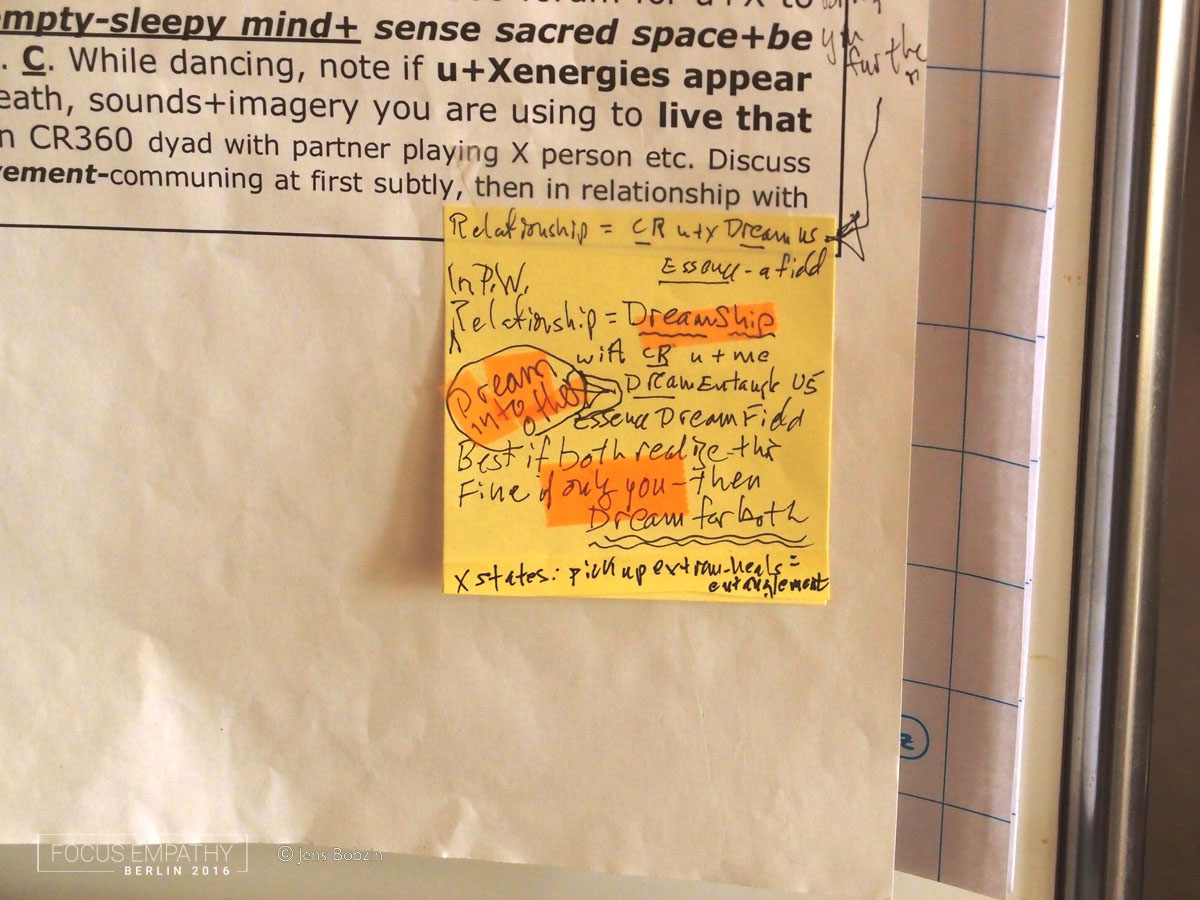 empty-sleepy mind+ sense sacred space+be
. C. While dancing, note if u+Xenergies appear
eath, sounds+imagery you are using to live that
n CR360 dyad with partner playing X person etc. Discuss
vement-communing at first subtly, then in relationship with
you
further
Relationship = CR u+x Dream us
Essence - a field
In P.W.
Relationship = DreamShip
with CR u + me
Dream into other
DreamEntangle US
Essence DreamField
Best if both realize this
Fine if only you - then
Dream for both
X states: pick up extrau-heals =
entanglement
2
FOCUS EMPATHY
BERLIN 2016
© Jens Bobzin